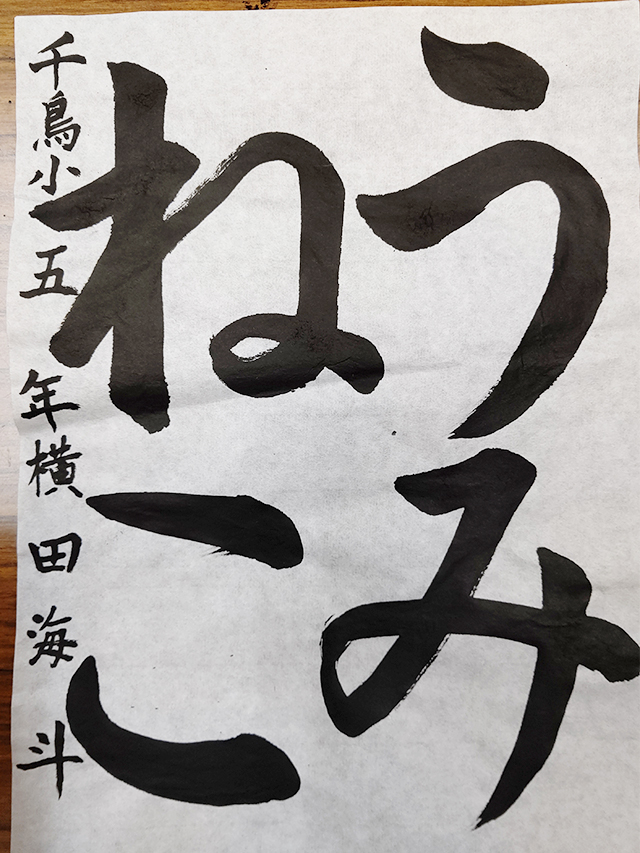 うみ
ねこ
千鳥小五年横田海斗